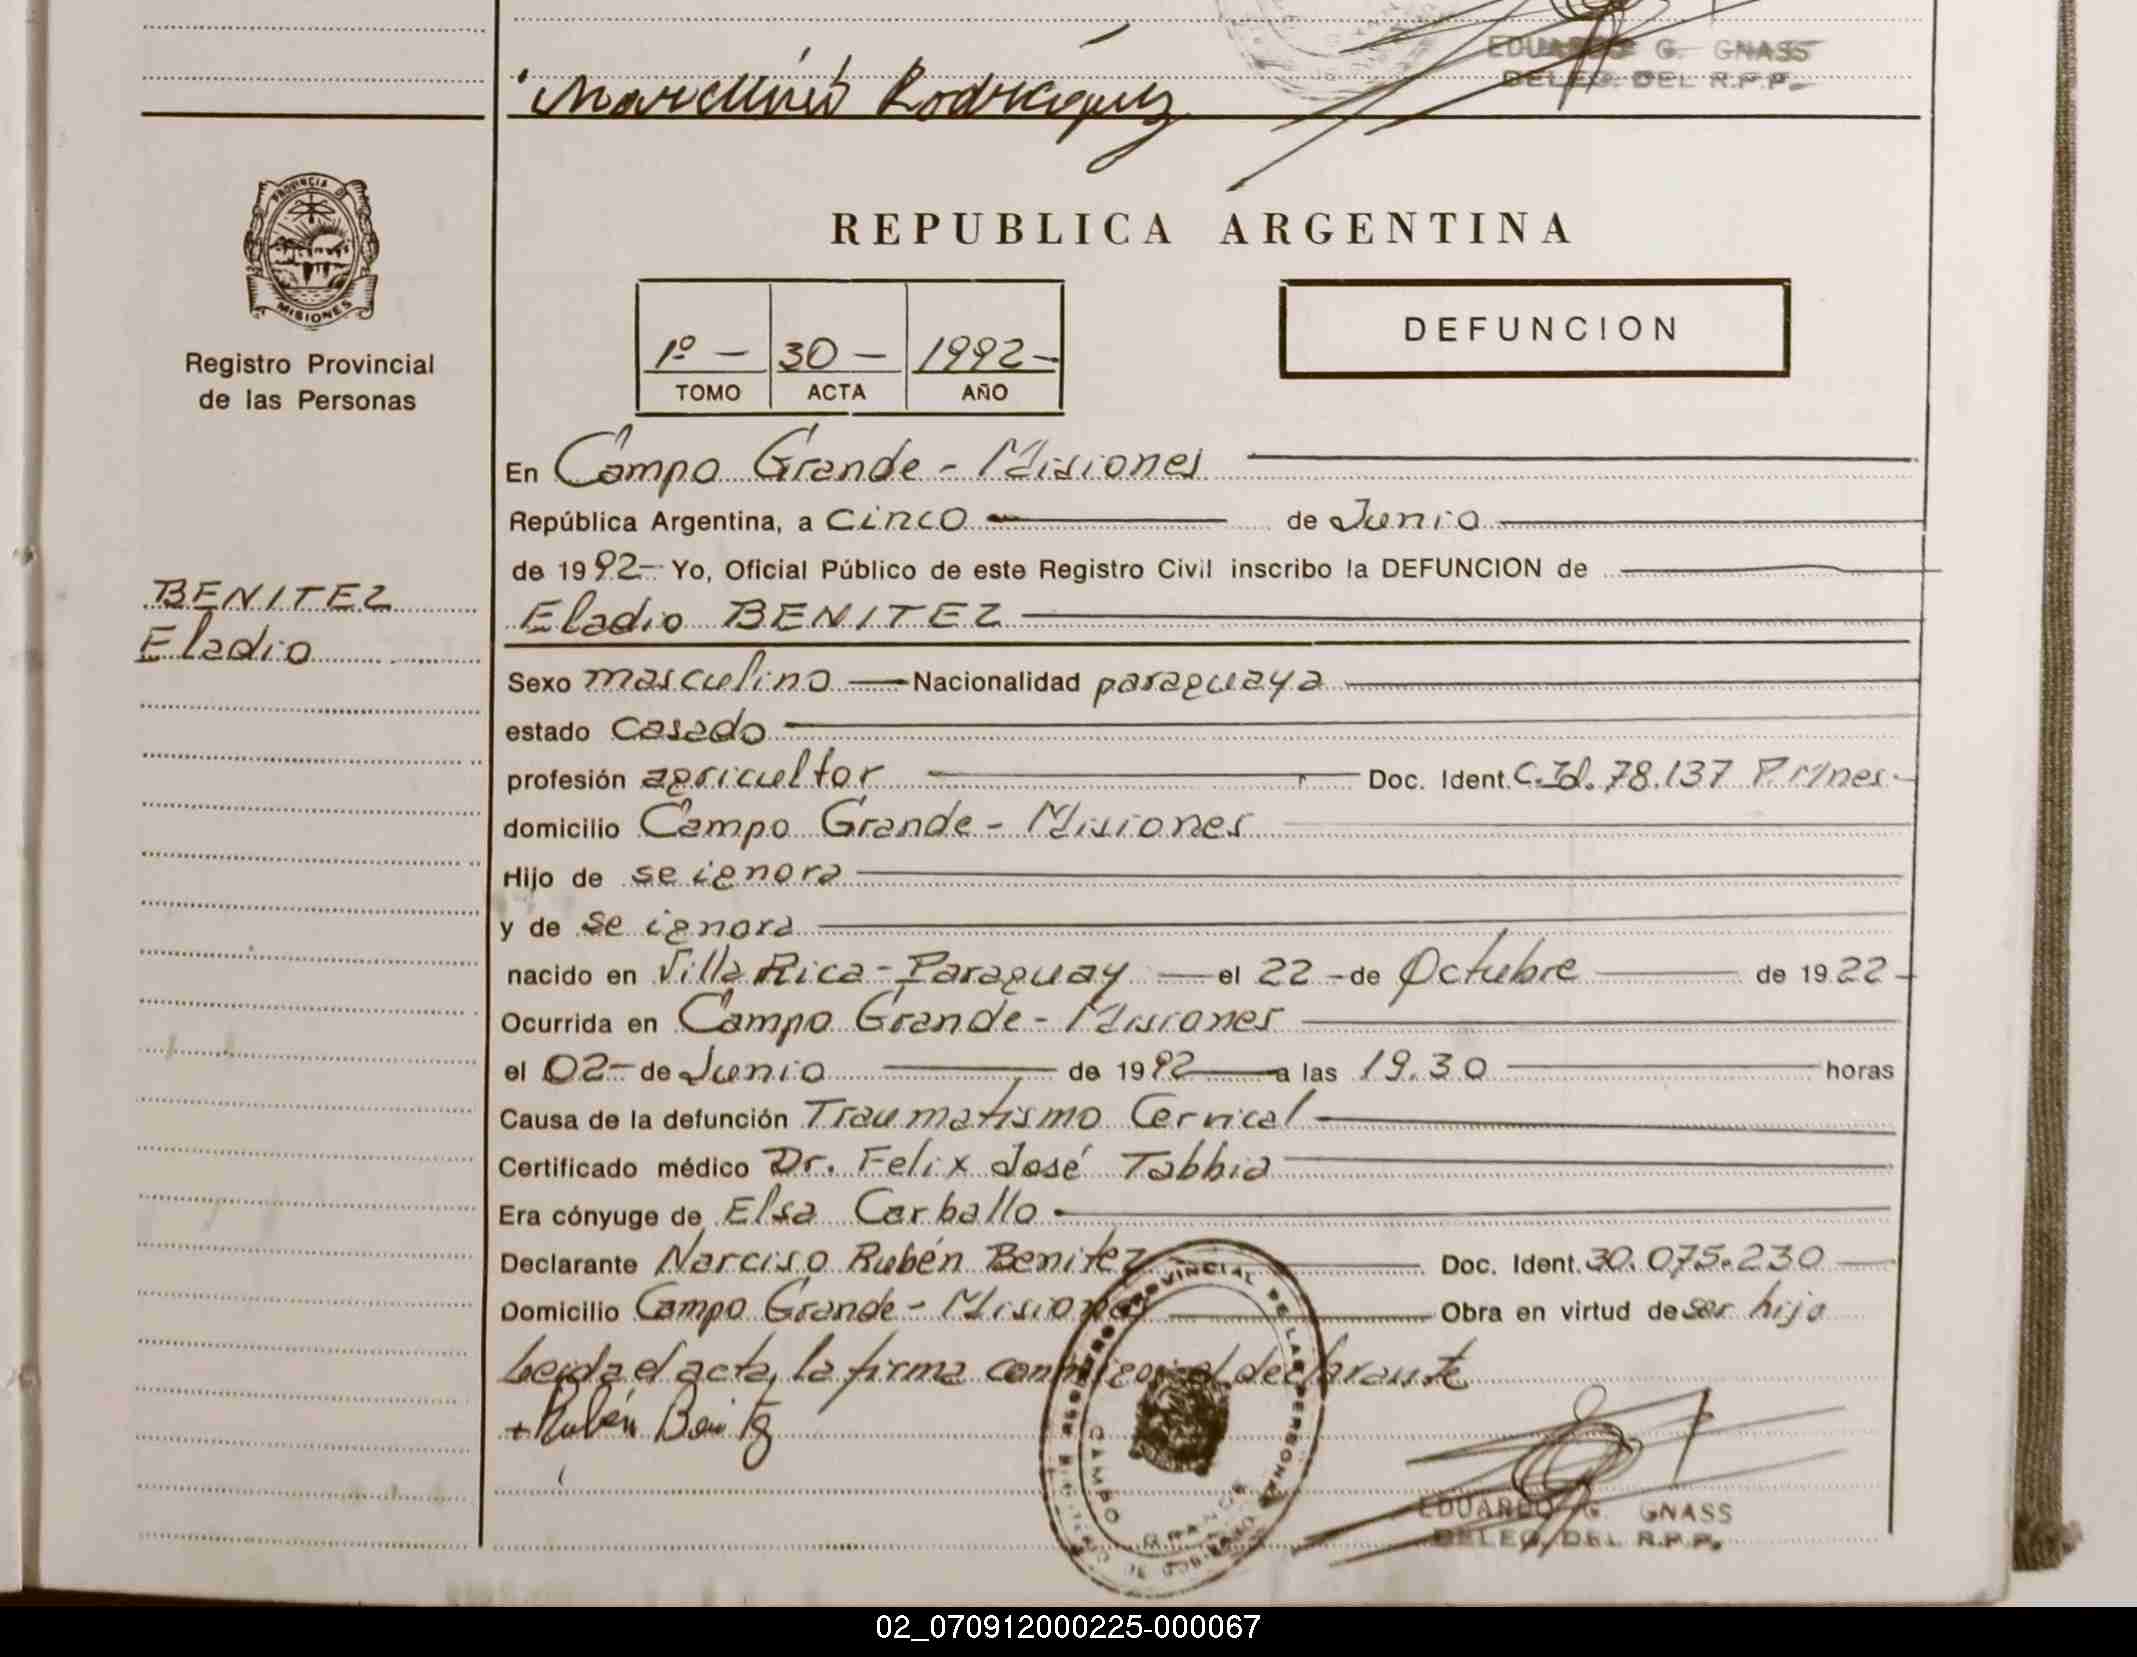 EDUARDO G. GNASS
DELEG. DEL R.P.P.
Rodriguez
PROVINCIA DE
MISIONES
Registro Provincial
de las Personas
REPUBLICA ARGENTINA
1º - 30 - 1992-
TOMO ACTA AÑO
DEFUNCION
En Campo Grande - Misiones
República Argentina, a cinco de Junio
de 1992- Yo, Oficial Público de este Registro Civil inscribo la DEFUNCION de
BENITEZ
Eladio
Eladio BENITEZ
Sexo masculino Nacionalidad paraguaya
estado casado
profesión agricultor Doc. Ident. C.Id. 78.137 P. Mnes.
domicilio Campo Grande - Misiones
Hijo de se ignora
y de se ignora
nacido en Villa Rica - Paraguay el 22 - de Octubre de 1922
Ocurrida en Campo Grande - Misiones
el 02- de Junio de 1992 a las 19.30 horas
Causa de la defunción Traumatismo Cervical
Certificado médico Dr. Felix José Tabbia
Era cónyuge de Elsa Carballo
Declarante Narciso Rubén Benitez Doc. Ident. 30.075.230
Domicilio Campo Grande - Misiones Obra en virtud de ser hijo
Leida el acta, la firma conmigo el declarante
+ Rubén Benitez
CAMPO GRANDE
EDUARDO G. GNASS
DELEG. DEL R.P.P.
02_070912000225-000067